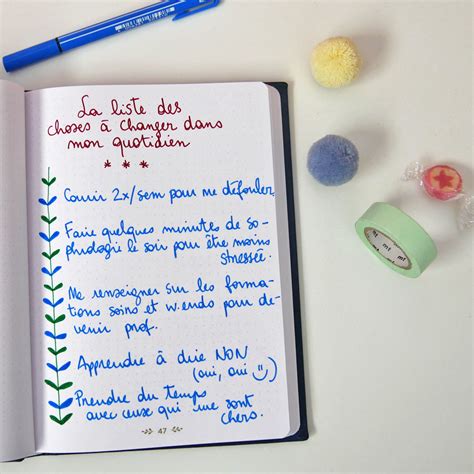 La liste des
choses à changer dans
mon quotidien
Courir 2x/sem pour me défouler.
Faire quelques minutes de so-
phrologie le soir pour être moins
stressée.
Me renseigner sur les forma-
tions soins et w.ends pour de-
venir prof.
Apprendre à dire NON
(oui, oui ☺)
Prendre du temps
avec ceux qui me sont
chers.
47
mt
mt